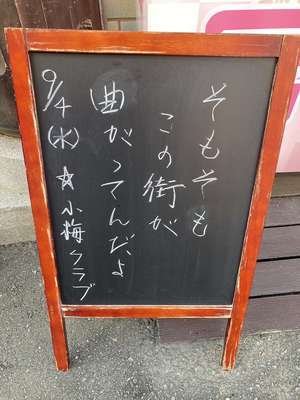 そもそも
この街が
曲がってんだよ
9/4(水)☆小梅クラブ